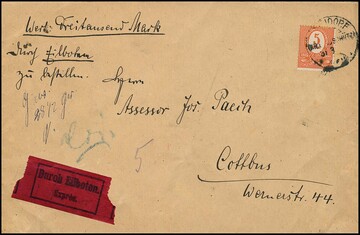 Wert: Dreitausend Mark
Durch Eilboten
zu bestellen.
Herrn
Assessor Jos. Paech
Cottbus
Wernerstr. 44.
5
5
Durch Eilboten.
Exprès.